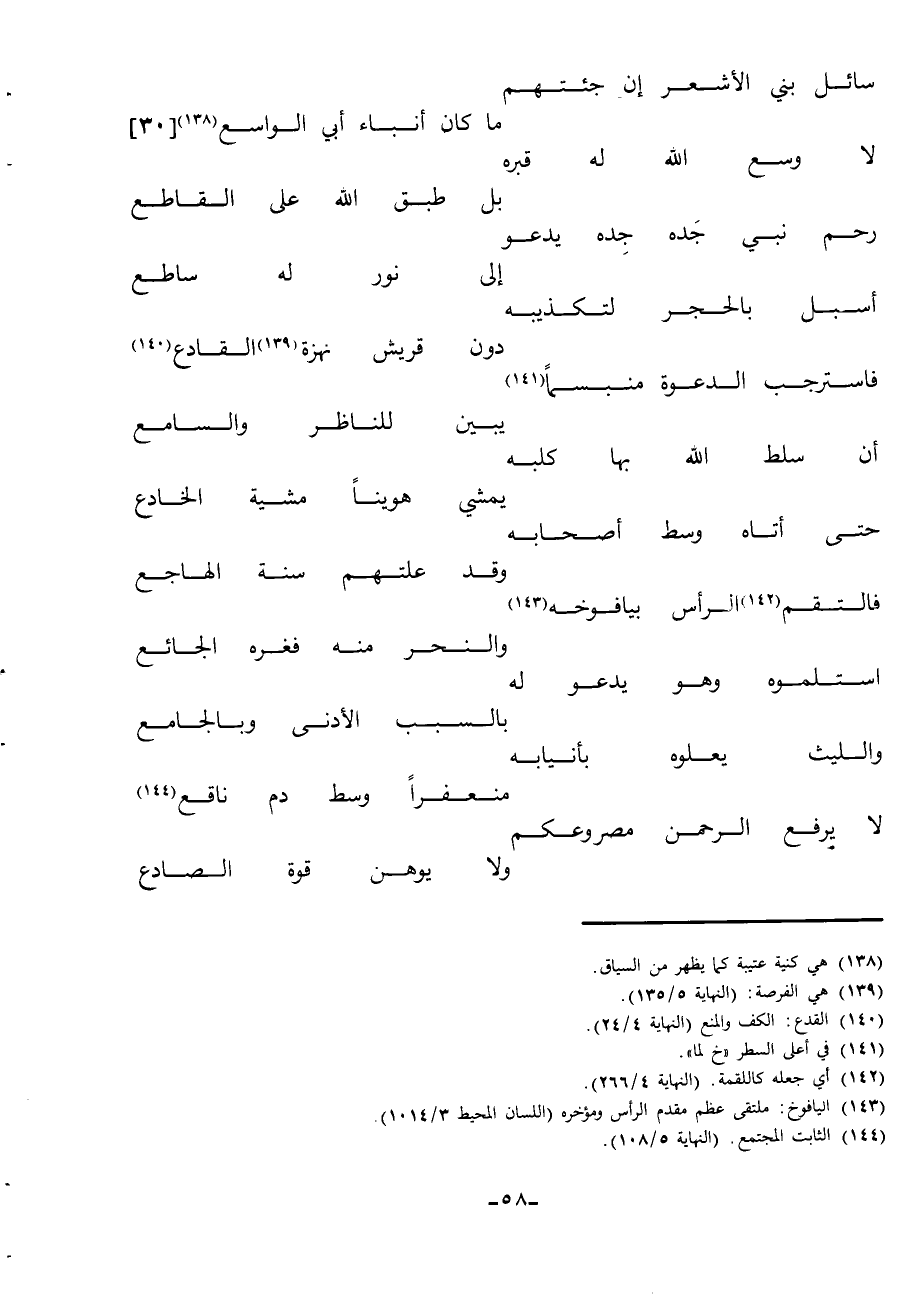 سائل بني الأشعر إن جئتهم
ما كان أنباء أبي الواسع(١٣٨)[٣٠]
لا وسع الله له قبره
بل طبق الله على القاطع
رحم نبي جَده جِده يدعو
إلى نور له ساطع
أسبل بالحجر لتكذيبه
دون قريش نهزة(١٣٩)القادع(١٤٠)
فاسترجب الدعوة منبسماً(١٤١)
يبين للناظر والسامع
أن سلط الله بها كلبه
يمشي هويناً مشية الخادع
حتى أتاه وسط أصحابه
وقد علتهم سنة الهاجع
فالتقم(١٤٢)الرأس بيافوخه(١٤٣)
والنحر منه فغره الجائع
استلموه وهو يدعو له
بالسبب الأدنى وبالجامع
والليث يعلوه بأنيابه
منعفراً وسط دم ناقع(١٤٤)
لا يرفع الرحمن مصروعكم
ولا يوهن قوة الصادع
(١٣٨) هي كنية عتيبة كما يظهر من السياق.
(١٣٩) هي الفرصة: (النهاية ١٣٥/٥).
(١٤٠) القدع: الكف والمنع (النهاية ٢٤/٤).
(١٤١) في أعلى السطر «خ لما».
(١٤٢) أي جعله كاللقمة. (النهاية ٢٦٦/٤).
(١٤٣) اليافوخ: ملتقى عظم مقدم الرأس ومؤخره (اللسان المحيط ١٠١٤/٣).
(١٤٤) الثابت المجتمع. (النهاية ١٠٨/٥).
ـ٥٨ـ